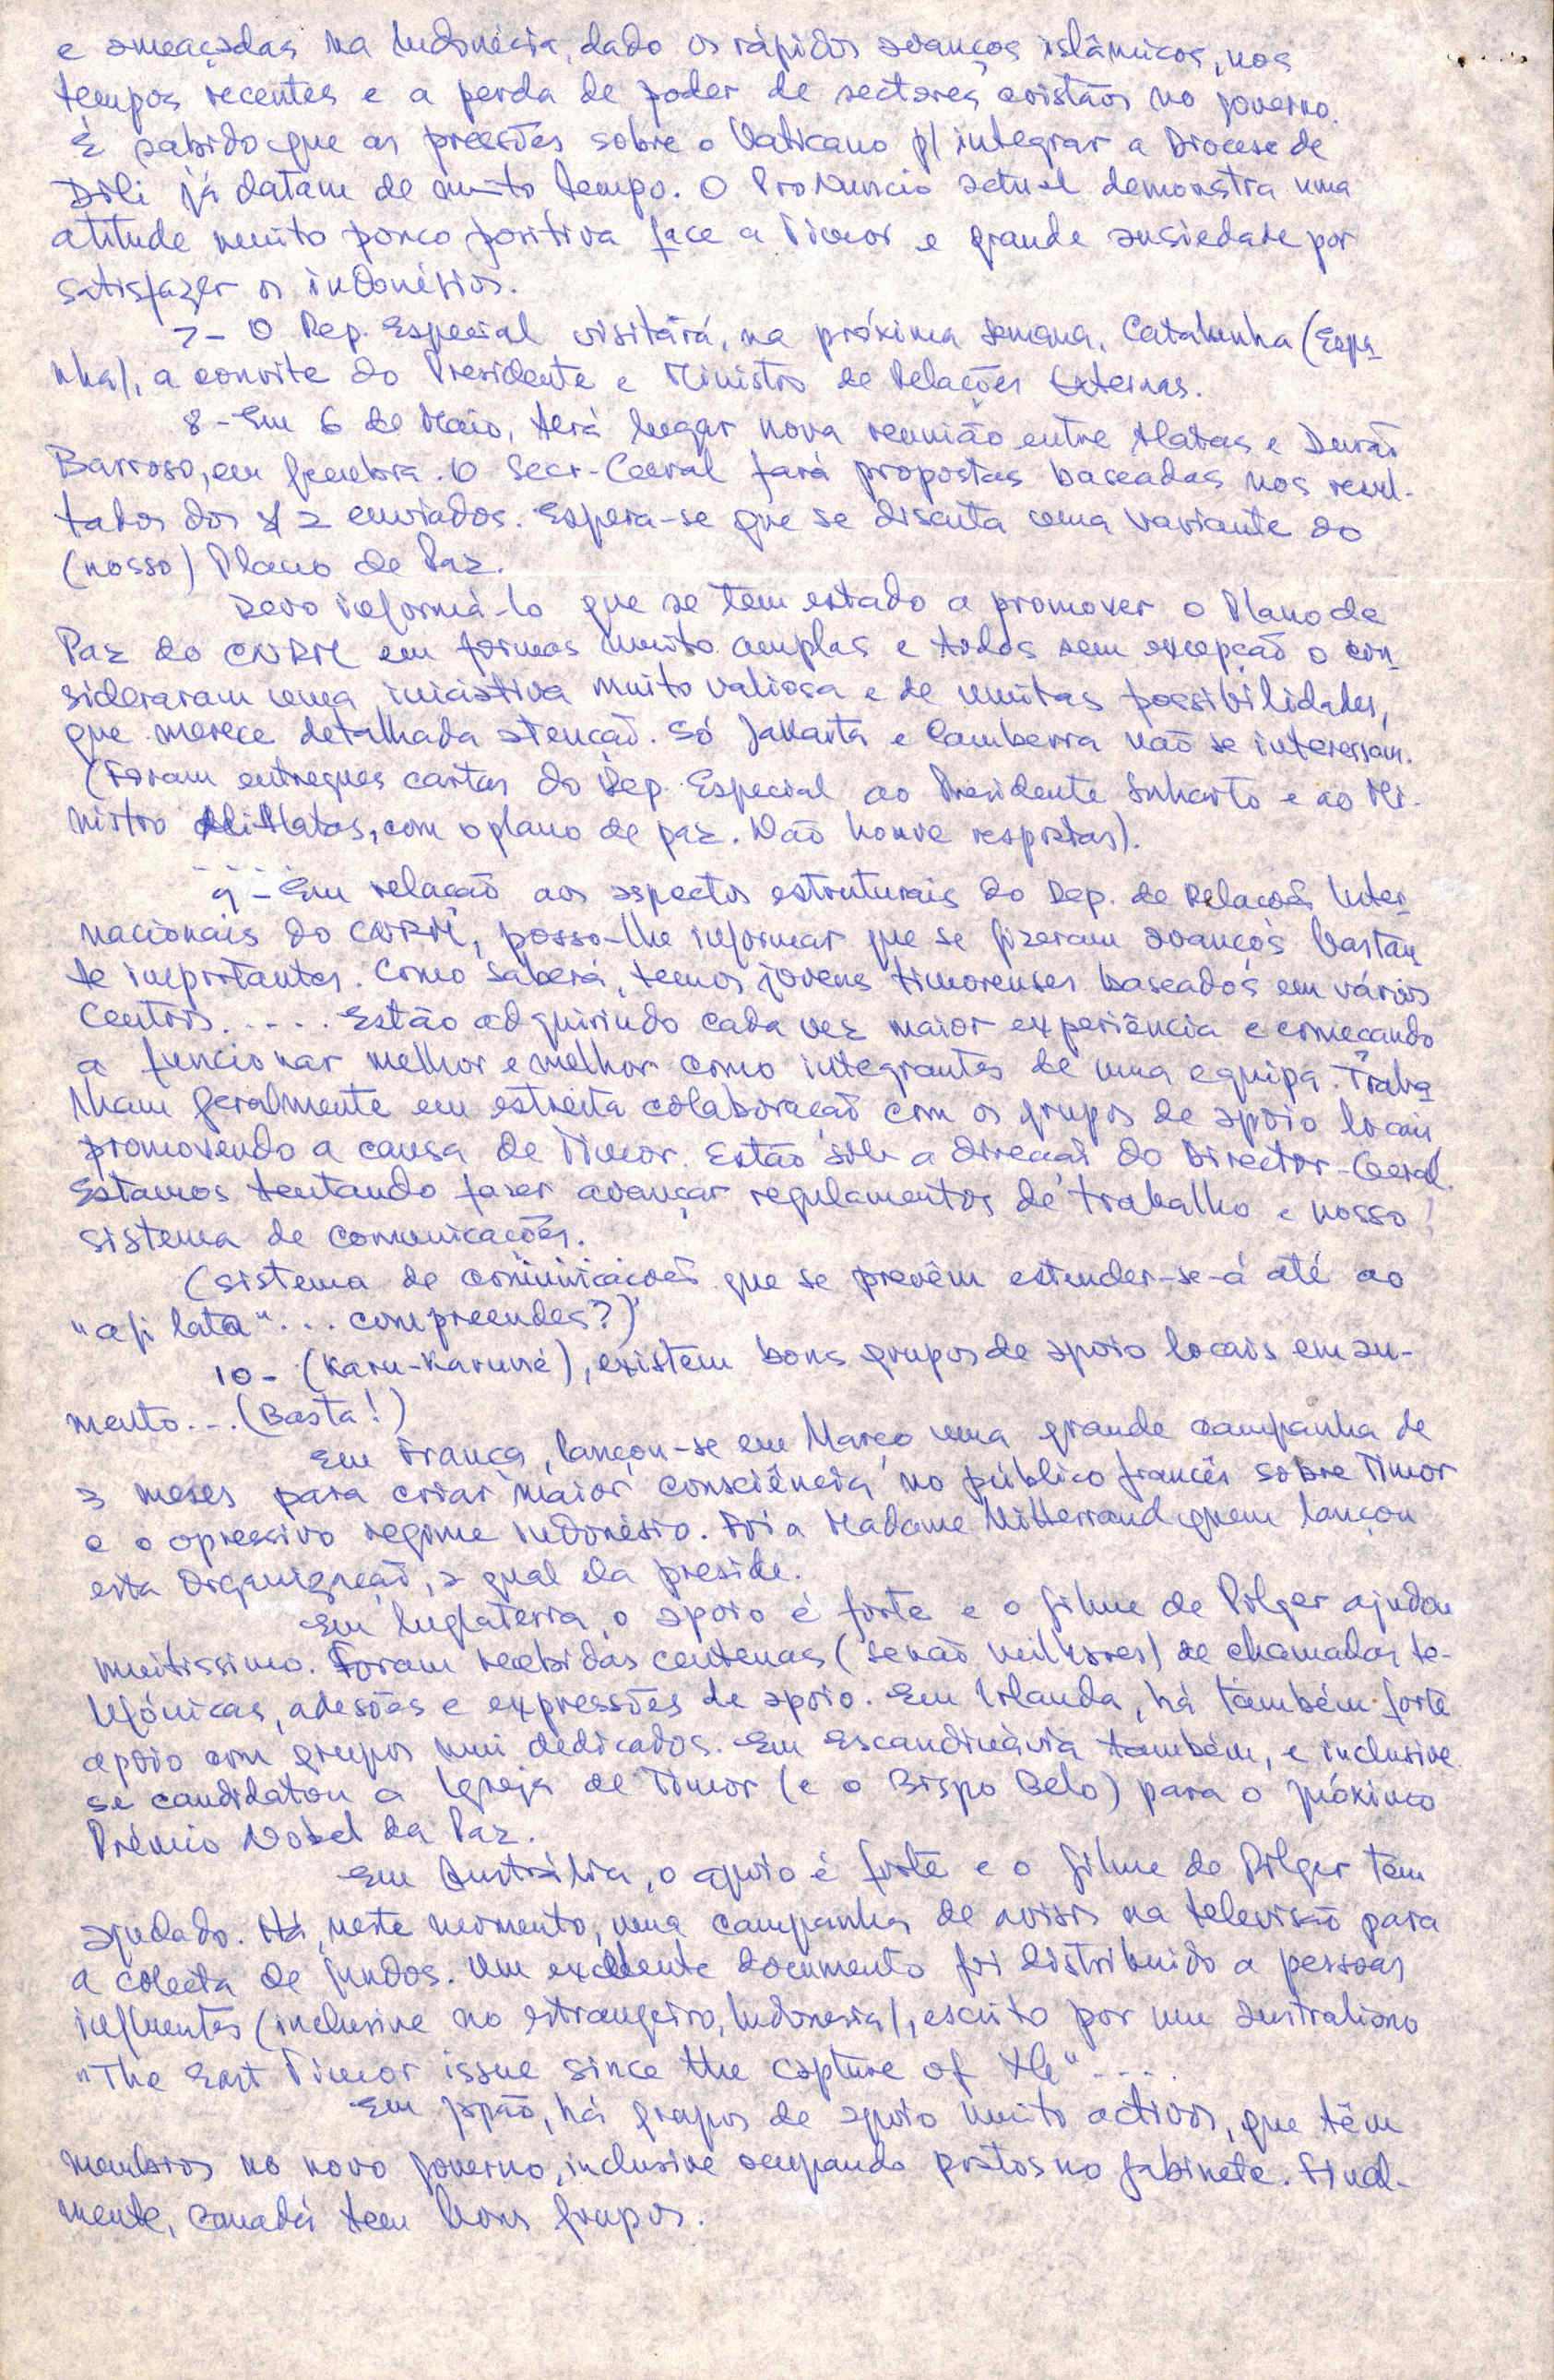 e ameaçadas na Indonésia, dado os rápidos avanços islâmicos, nos
tempos recentes e a perda de poder de sectores cristãos no governo.
É sabido que as pressões sobre o Vaticano p/ integrar a Diocese de
Dili já datam de muito tempo. O ProNuncio actual demonstra uma
atitude muito pouco positiva face a Timor e grande ansiedade por
satisfazer os indonésios.
7- O Rep. Especial visitará, na próxima semana, Catalunha (Espa
nha), a convite do Presidente e Ministro de Relações Externas.
8- Em 6 de Maio, terá lugar nova reunião entre Alatas e Durão
Barroso, em Genebra. O Secr-Geral fará propostas baseadas nos resul-
tados dos 2 enviados. Espera-se que se discuta uma variante do
(nosso) Plano de Paz.
Devo informá-lo que se tem estado a promover o Plano de
Paz do CNRM em formas muito amplas e todos sem excepção o con
sideraram uma iniciativa muito valiosa e de muitas possibilidades,
que merece detalhada atenção. Só Jakarta e Camberra não se interessam.
(Foram entregues cartas do Rep. Especial ao Presidente Suharto e ao Mi-
nistro Ali Alatas, com o plano de paz. Não houve respostas).
9- Em relação aos aspectos estruturais do Dep. de Relações Inter
nacionais do CNRM, posso-lhe informar que se fizeram avanços bastan
te importantes. Como saberá, temos jovens timorenses baseados em vários
Centros..... Estão adquirindo cada vez maior experiência e começando
a funcionar melhor e melhor como integrantes de uma equipa. Traba
lham geralmente em estreita colaboração com os grupos de apoio locais
promovendo a causa de Timor. Estão sob a direcção do Director-Geral.
Estamos tentando fazer avançar regulamentos de trabalho e nosso
sistema de comunicações.
(sistema de comunicações que se prevêm estender-se-á até ao
"api lata"... compreendes?)
10- (Karu-karuné), existem bons grupos de apoio locais em au-
mento...(Basta!)
Em França, lançou-se em Março uma grande campanha de
3 meses para criar maior consciência no público francês sobre Timor
e o opressivo regime indonésio. Foi a Madame Mitterrand quem lançou
esta Organização, a qual ela preside.
Em Inglaterra, o apoio é forte e o filme de Pilger ajudou
muitíssimo. Foram recebidas centenas (senão milhares) de chamadas te-
lefónicas, adesões e expressões de apoio. Em Irlanda, há também forte
apoio com grupos mui dedicados. Em Escandinávia também, e inclusive
se candidatou a Igreja de Timor (e o Bispo Belo) para o próximo
Prémio Nobel da Paz.
Em Austrália, o apoio é forte e o filme do Pilger tem
ajudado. Há, neste momento, uma campanha de avisos na televisão para
a colecta de fundos. Um excelente documento foi distribuido a pessoas
influentes (inclusive no estrangeiro, Indonesia), escrito por um australiano
"The East Timor issue since the capture of XG"....
Em Japão, há grupos de apoio muito activos, que têm
membros no novo governo, inclusive ocupando postos no gabinete. Final-
mente, Canadá tem bons grupos.